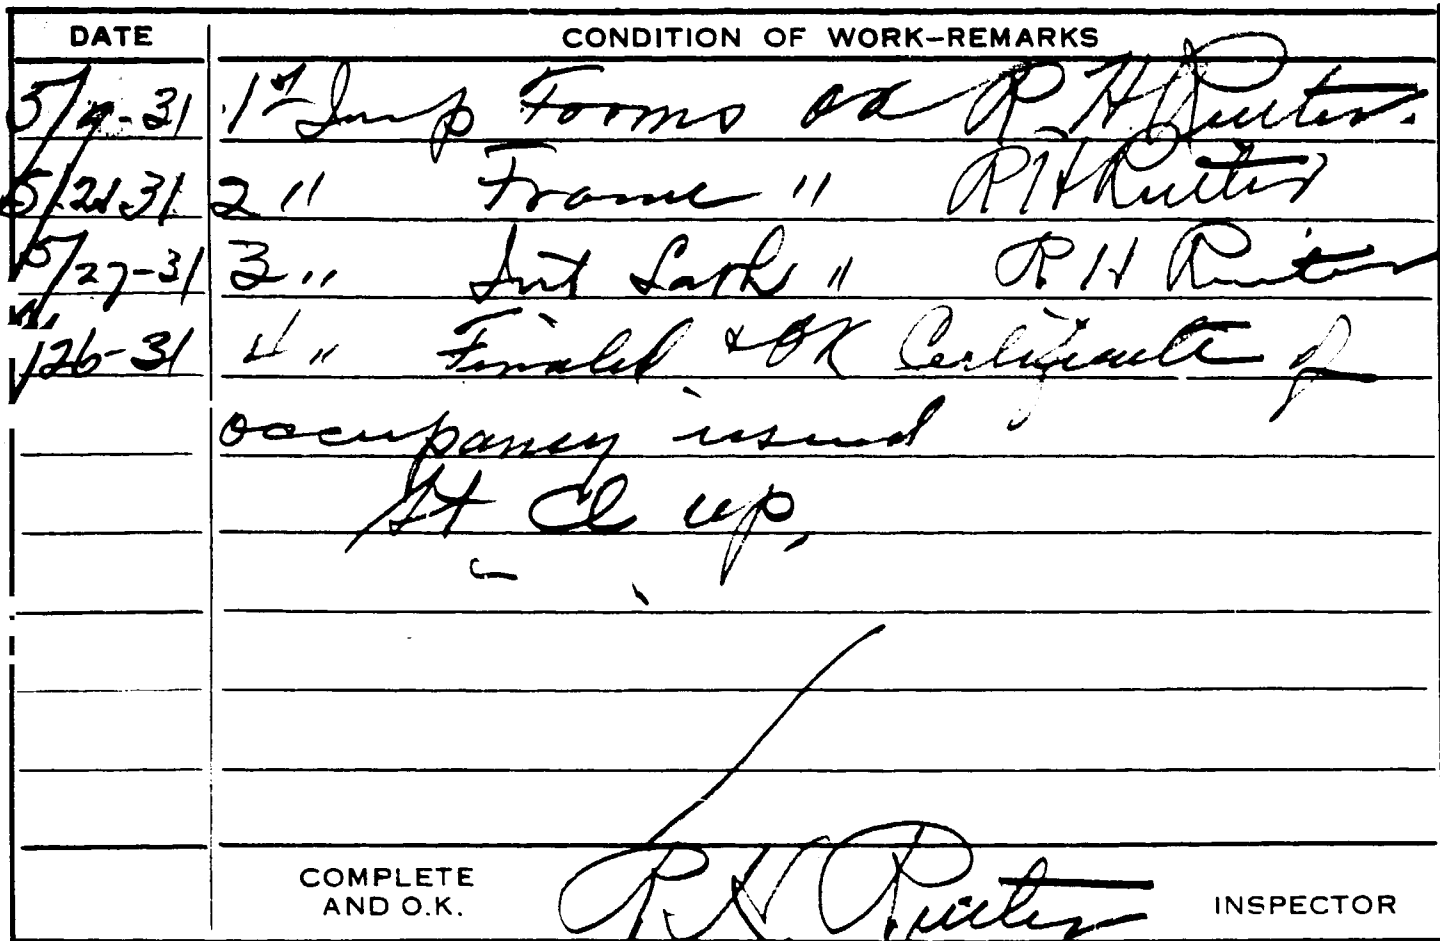 DATE CONDITION OF WORK-REMARKS
5/9-31 1st Insp Forms OK R H Ruiter.
5/21 31 2 " Frame " R H Ruiter
5/27-31 3 " Int Lath " R H Ruiter
/26-31 4 " Finaled & OK Certificate of
occupancy issued
St Cl up,
COMPLETE AND O.K. R H Ruiter INSPECTOR